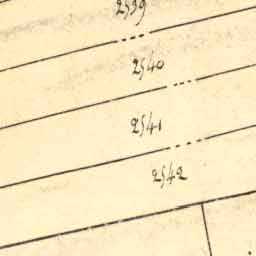 2539
2540
2541
2542